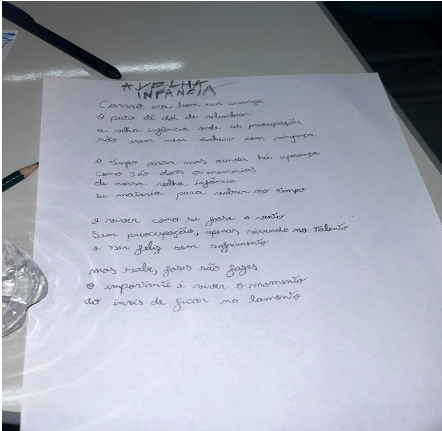 A VELHA
INFÂNCIA
Como era bom ser criança
O peito dê dói de relembrar
a velha infância onde as preocupações
não eram nem dinheiro nem vingança
o tempo passa mas ainda há esperança
como são doces as memórias
de nossa velha infância
eu mataria para voltar no tempo
e viver como se fosse o vento
Sem preocupação, apenas mirando no talento
e ser feliz sem sofrimento
mas sabe, fases são fases
o importante é viver o momento
ao invés de ficar no lamento